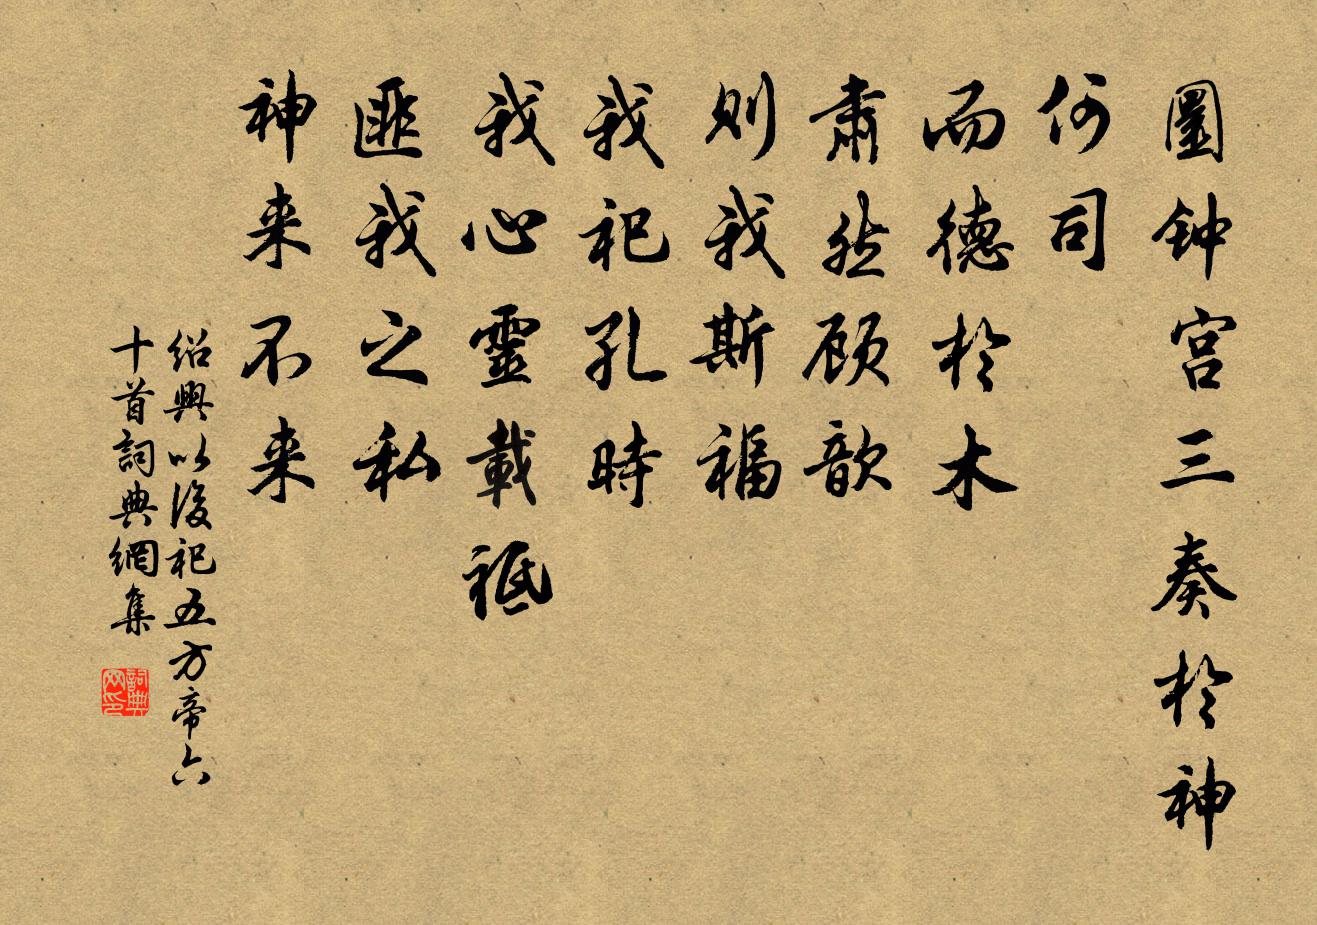 圜钟宫三奏於神
何司
而德於木
肅然顾歆
则我斯福
我祀孔時
我心靈載祗
匪我之私
神来不来
绍興以後祀五方帝六
十首詞典網集
詞典网印